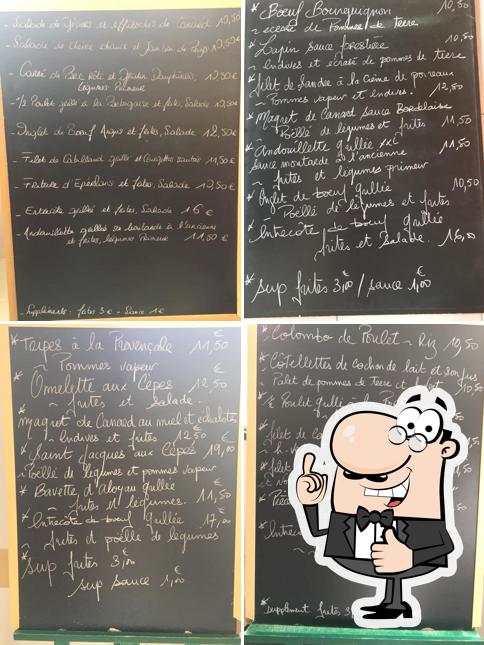 Salade de Gésiers et effilochée de Canard 10,50
Salade de chèvre chaud et Jambon de Pays 10,50€
- Carré de Porc rôti et Gratin Dauphinois, 10,50€
Légumes Primeur
- 1/2 Poulet grillé à la Portugaise et frites, Salade 10,50€
- Onglet de Boeuf Angus et frites, Salade 12,50€
- Filet de Cabillaud grillé et Courgettes sautées 11,50€
- Friture d'Eperlans et frites, Salade 10,50€
- Entrecôte grillée et frites, Salade 16 €
- Andouillette grillée sce moutarde à l'ancienne
et frites, légumes Primeur 11,50€
- Suppléments : frites 3€ - Sauce 1€
* Boeuf Bourguignon 10,50
~ écrasé de Pommes de terre
* Lapin sauce forestière 10,50
~ Endives et écrasé de pommes de terre
* filet de Sandre à la Crème de poireaux
~ Pommes vapeur et endives. 12,50
* Magret de Canard sauce Bordelaise
Poëllé de légumes et frites 11,50
* Andouillette grillée xxl
sauce moutarde à l'ancienne 11,50
~ frites et légumes primeur
* Onglet de boeuf grillée 10,50
Poëllé de légumes et frites
* Entrecôte de boeuf grillée
frites et salade. 16,00
* sup frites 3,00€ / sauce 1,00€
* Tripes à la Provençale 11,50€
~ Pommes vapeur
* Omelette aux Cèpes 12,50€
~ frites et salade.
* magret de Canard au miel et échalotes
~ Endives et frites 12,50€
* Saint Jacques aux Cèpes 19,00€
~ Poëllé de légumes et pommes vapeur
* Bavette d'Aloyau grillée
~ frites et légumes. 11,50€
* Entrecôte de boeuf grillée 17,00€
frites et poëlle de légumes
* sup frites 3,00€
sup sauce 1,00€
* Colombo de Poulet ~ Riz 10,50
* Côtellettes de cochon de lait et son jus
~ Palet de pommes de terre et 10,50
* 1/2 Poulet grillé à la
* filet de
* filet
* Entrec
* supplément frites 3